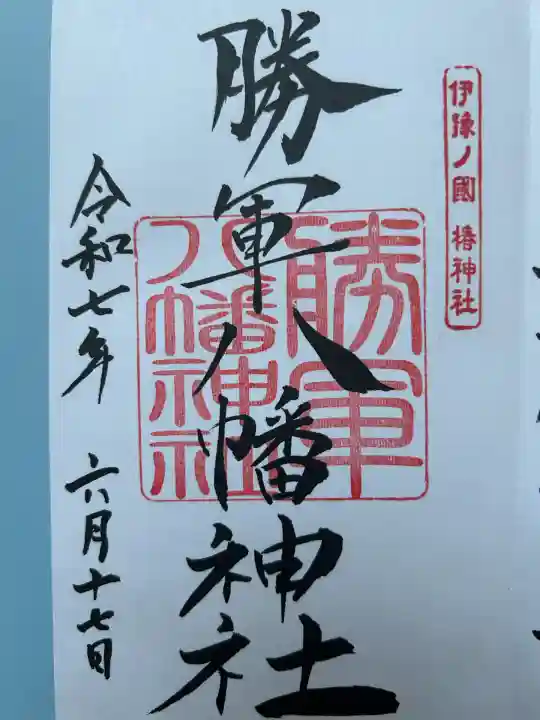 伊豫ノ國 椿神社
勝軍八幡神社
勝軍
八幡
神社
令和七年 六月十七日